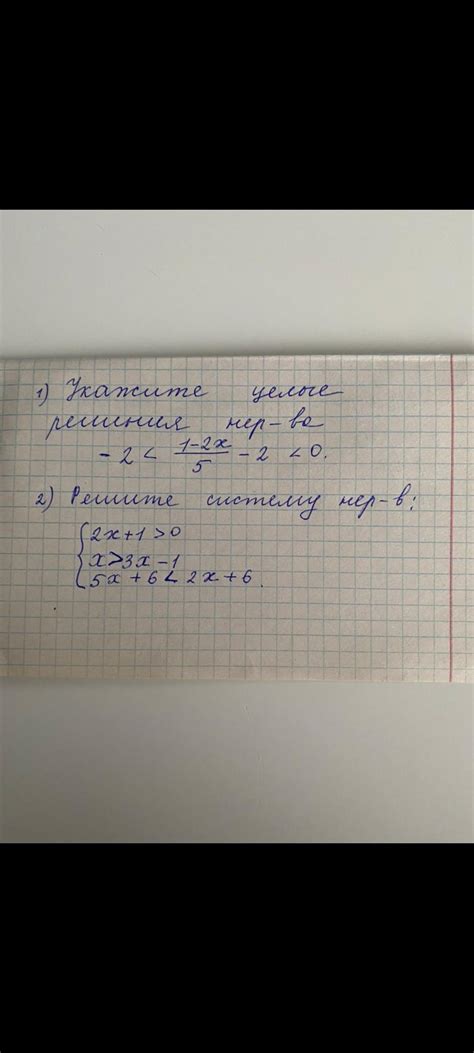 1) Укажите целые
решения нер-ва
- 2 < \frac{1-2x}{5} - 2 < 0.
2) Решите систему нер-в:
2x+1>0
x>3x-1
5x+6<2x+6.